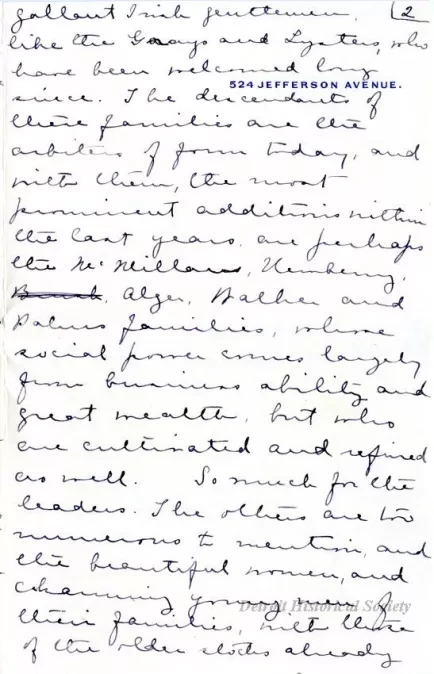 gallant Irish gentlemen, 2
like the Grays and Lysters, who
have been welcomed long
524 JEFFERSON AVENUE.
since. The descendants of
these families are the
arbiters of form today, and
with them, the most
prominent additions within
the last years are perhaps
the McMillans, Newberry,
Alger, Walker and
Palms families, whose
social power comes largely
from business ability and
great wealth, but who
are cultivated and refined
as well. So much for the
leaders. The others are too
numerous to mention, and
the beautiful women, and
charming young men of
Detroit Historical Society
their families, with those
of the older stocks already